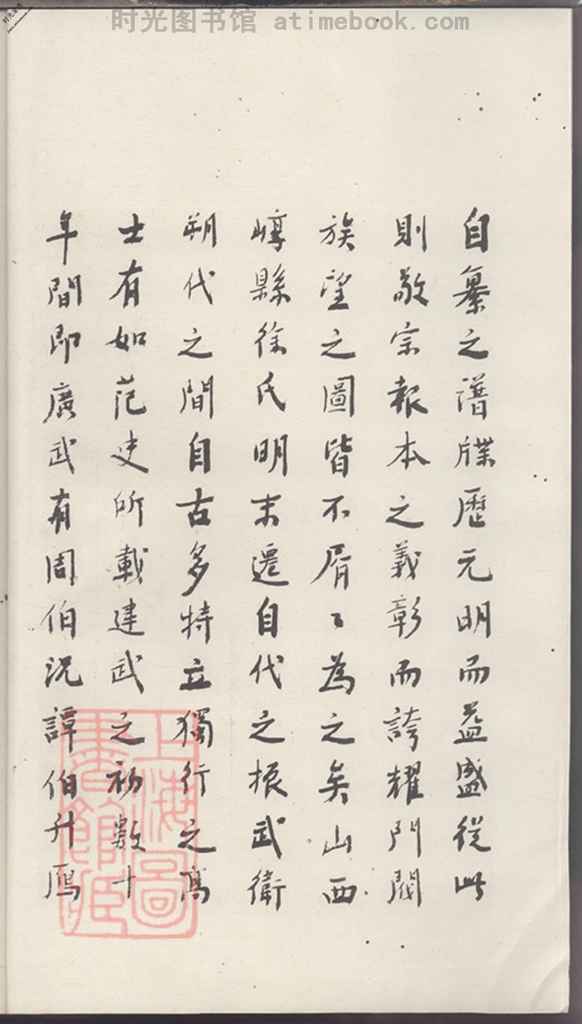 时光图书馆 atimebook.com
自纂之譜牒歷元明而益盛從此
則敬宗報本之義彰而誇耀門閥
族望之圖皆不屑〻為之矣山西
崞縣徐氏明末遷自代之振武衛
朔代之間自古多特立獨行之高
士有如范史所載建武之初數十
年間即廣武有周伯況譚伯升鴈
上海圖
書館藏